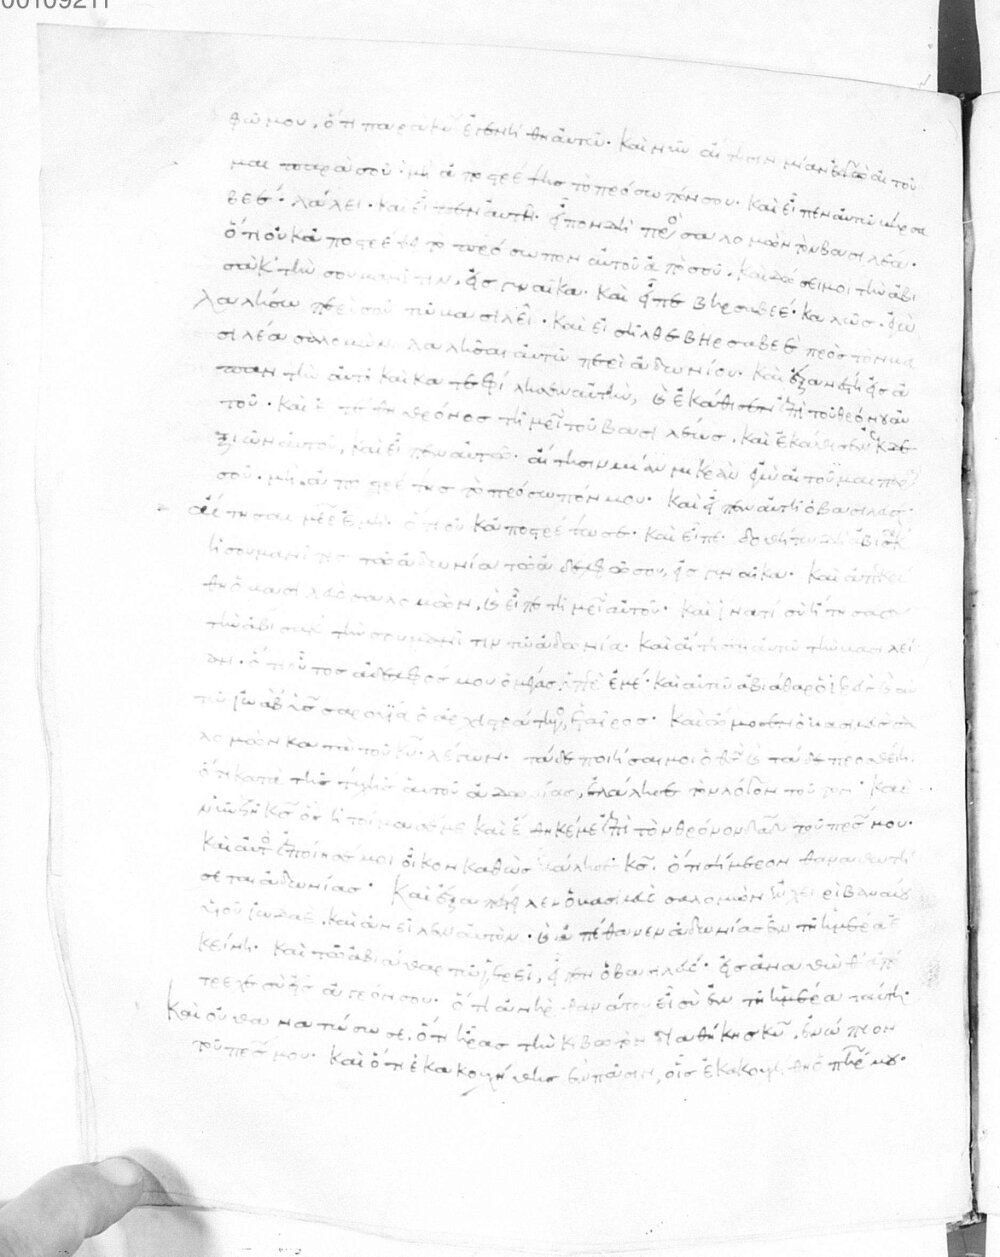 00109211
φῶ μου, ὅτι παρὰ κυ ἐγενήθη αὐτῶ. καὶ νῦν αἴτησιν μίαν ἐγὼ αἰτοῦ
μαι παρὰ σοῦ. μὴ ἀποστρέψης τὸ πρόσωπόν σου. καὶ εἶπεν αὐτῶ βηρσα
βεέ. λάλει. καὶ εἶπεν αὐτῆ. εἶπον δὴ πρὸς σαλομὼν τὸν βασιλέα.
ὅτι οὐκ ἀποστρέψει τὸ πρόσωπον αὐτοῦ ἀπὸ σοῦ. καὶ δώσει μοι τὴν ἀβι
σὰκ τὴν σουμανίτην, εἰς γυναῖκα. καὶ εἶπε βηρσαβεέ. καλῶς. ἐγὼ
λαλήσω περὶ σοῦ τῶ βασιλεῖ. καὶ εἰσῆλθε βηρσαβεὲ πρὸς τὸν βα
σιλέα σαλομὼν λαλῆσαι αὐτῶ περὶ ἀδωνίου. καὶ ἐξανέστη εἰς ἀ
παντὴν αὐτῆ καὶ κατεφίλησεν αὐτὴν, καὶ ἐκάθισεν ἐπὶ τοῦ θρόνου αὐ
τοῦ. καὶ ἐτέθη θρόνος τῆ μρὶ τοῦ βασιλέως. καὶ ἐκάθισεν ἐκ δε
ξιῶν αὐτοῦ, καὶ εἶπεν αὐτῶ. αἴτησιν μίαν μικρὰν ἐγὼ αἰτοῦμαι παρὰ
σοῦ. μὴ ἀποστρέψης τὸ πρόσωπόν μου. καὶ εἶπεν αὐτῆ ὁ βασιλεύς.
αἴτησαι μρ ἐμὴ. ὅτι οὐκ ἀποστρέψω σε. καὶ εἶπε. δοθήτω δὴ ἀβισὰκ
ἡ σουμανίτης τῶ ἀδωνία τῶ ἀδελφῶ σου, εἰς γυναῖκα. καὶ ἀπεκρί
θη ὁ βασιλεὺς σαλομὼν, καὶ εἶπε τῆ μρὶ αὐτοῦ. καὶ ἱνατί σὺ ἤτησαι
τὴν ἀβισὰκ τὴν σουμανίτιν τῶ ἀδωνία. καὶ αἴτησαι αὐτῶ τὴν βασιλεί
αν. ὅτι οὗτος ἀδελφός μου ὁ μέγας ὑπὲρ ἐμέ. καὶ αὐτῶ ἀβιάθαρ ὁ ἱερεὺς καὶ αὐ
τῶ ἰωὰβ υἱὸς σαρουΐα ὁ ἀρχιστράτηγος, ἑταῖρος. καὶ ὤμοσεν ὁ βασιλεὺς σα
λομὼν κατὰ τοῦ κυ λέγων. τάδε ποιήσαι μοι ὁ θς καὶ τάδε προσθείη.
ὅτι κατὰ τῆς ψυχῆς αὐτοῦ ἀδωνίας, ἐλάλησε τὸν λόγον τοῦτον. καὶ
νῦν ζῆ κς ὃς ἡτοίμασέ με καὶ ἔθηκέ με ἐπὶ τὸν θρόνον δαδ τοῦ πρς μου.
καὶ αὐτὸς ἐποίησέ μοι οἶκον καθὼς ἐλάλησε κς. ὅτι σήμερον θανατωθή
σεται ἀδωνίας. καὶ ἐξαπέστειλεν ὁ βασιλεὺς σαλομὼν ἐν χειρὶ βαναίου
υἱοῦ ἰωδαὲ. καὶ ἀνεῖλεν αὐτὸν. καὶ ἀπέθανεν ἀδωνίας ἐν τῆ ἡμέρα ἐ
κείνη. καὶ τῶ ἀβιάθαρ τῶ ἱερεῖ, εἶπεν ὁ βασιλεύς. εἰς ἀναθὼθ ἀπό
τρεχε σὺ εἰς ἀγρόν σου. ὅτι ἀνὴρ θανάτου εἶ σὺ ἐν τῆ ἡμέρα ταύτη.
καὶ οὐ θανατώσω σε. ὅτι ἦρας τὴν κιβωτὸν διαθήκης κυ, ἐνώπιον
τοῦ πρς μου. καὶ ὅτι ἐκακουχήθης ἐν πᾶσιν, οἷς ἐκακουχήθη ὁ πηρ μου.